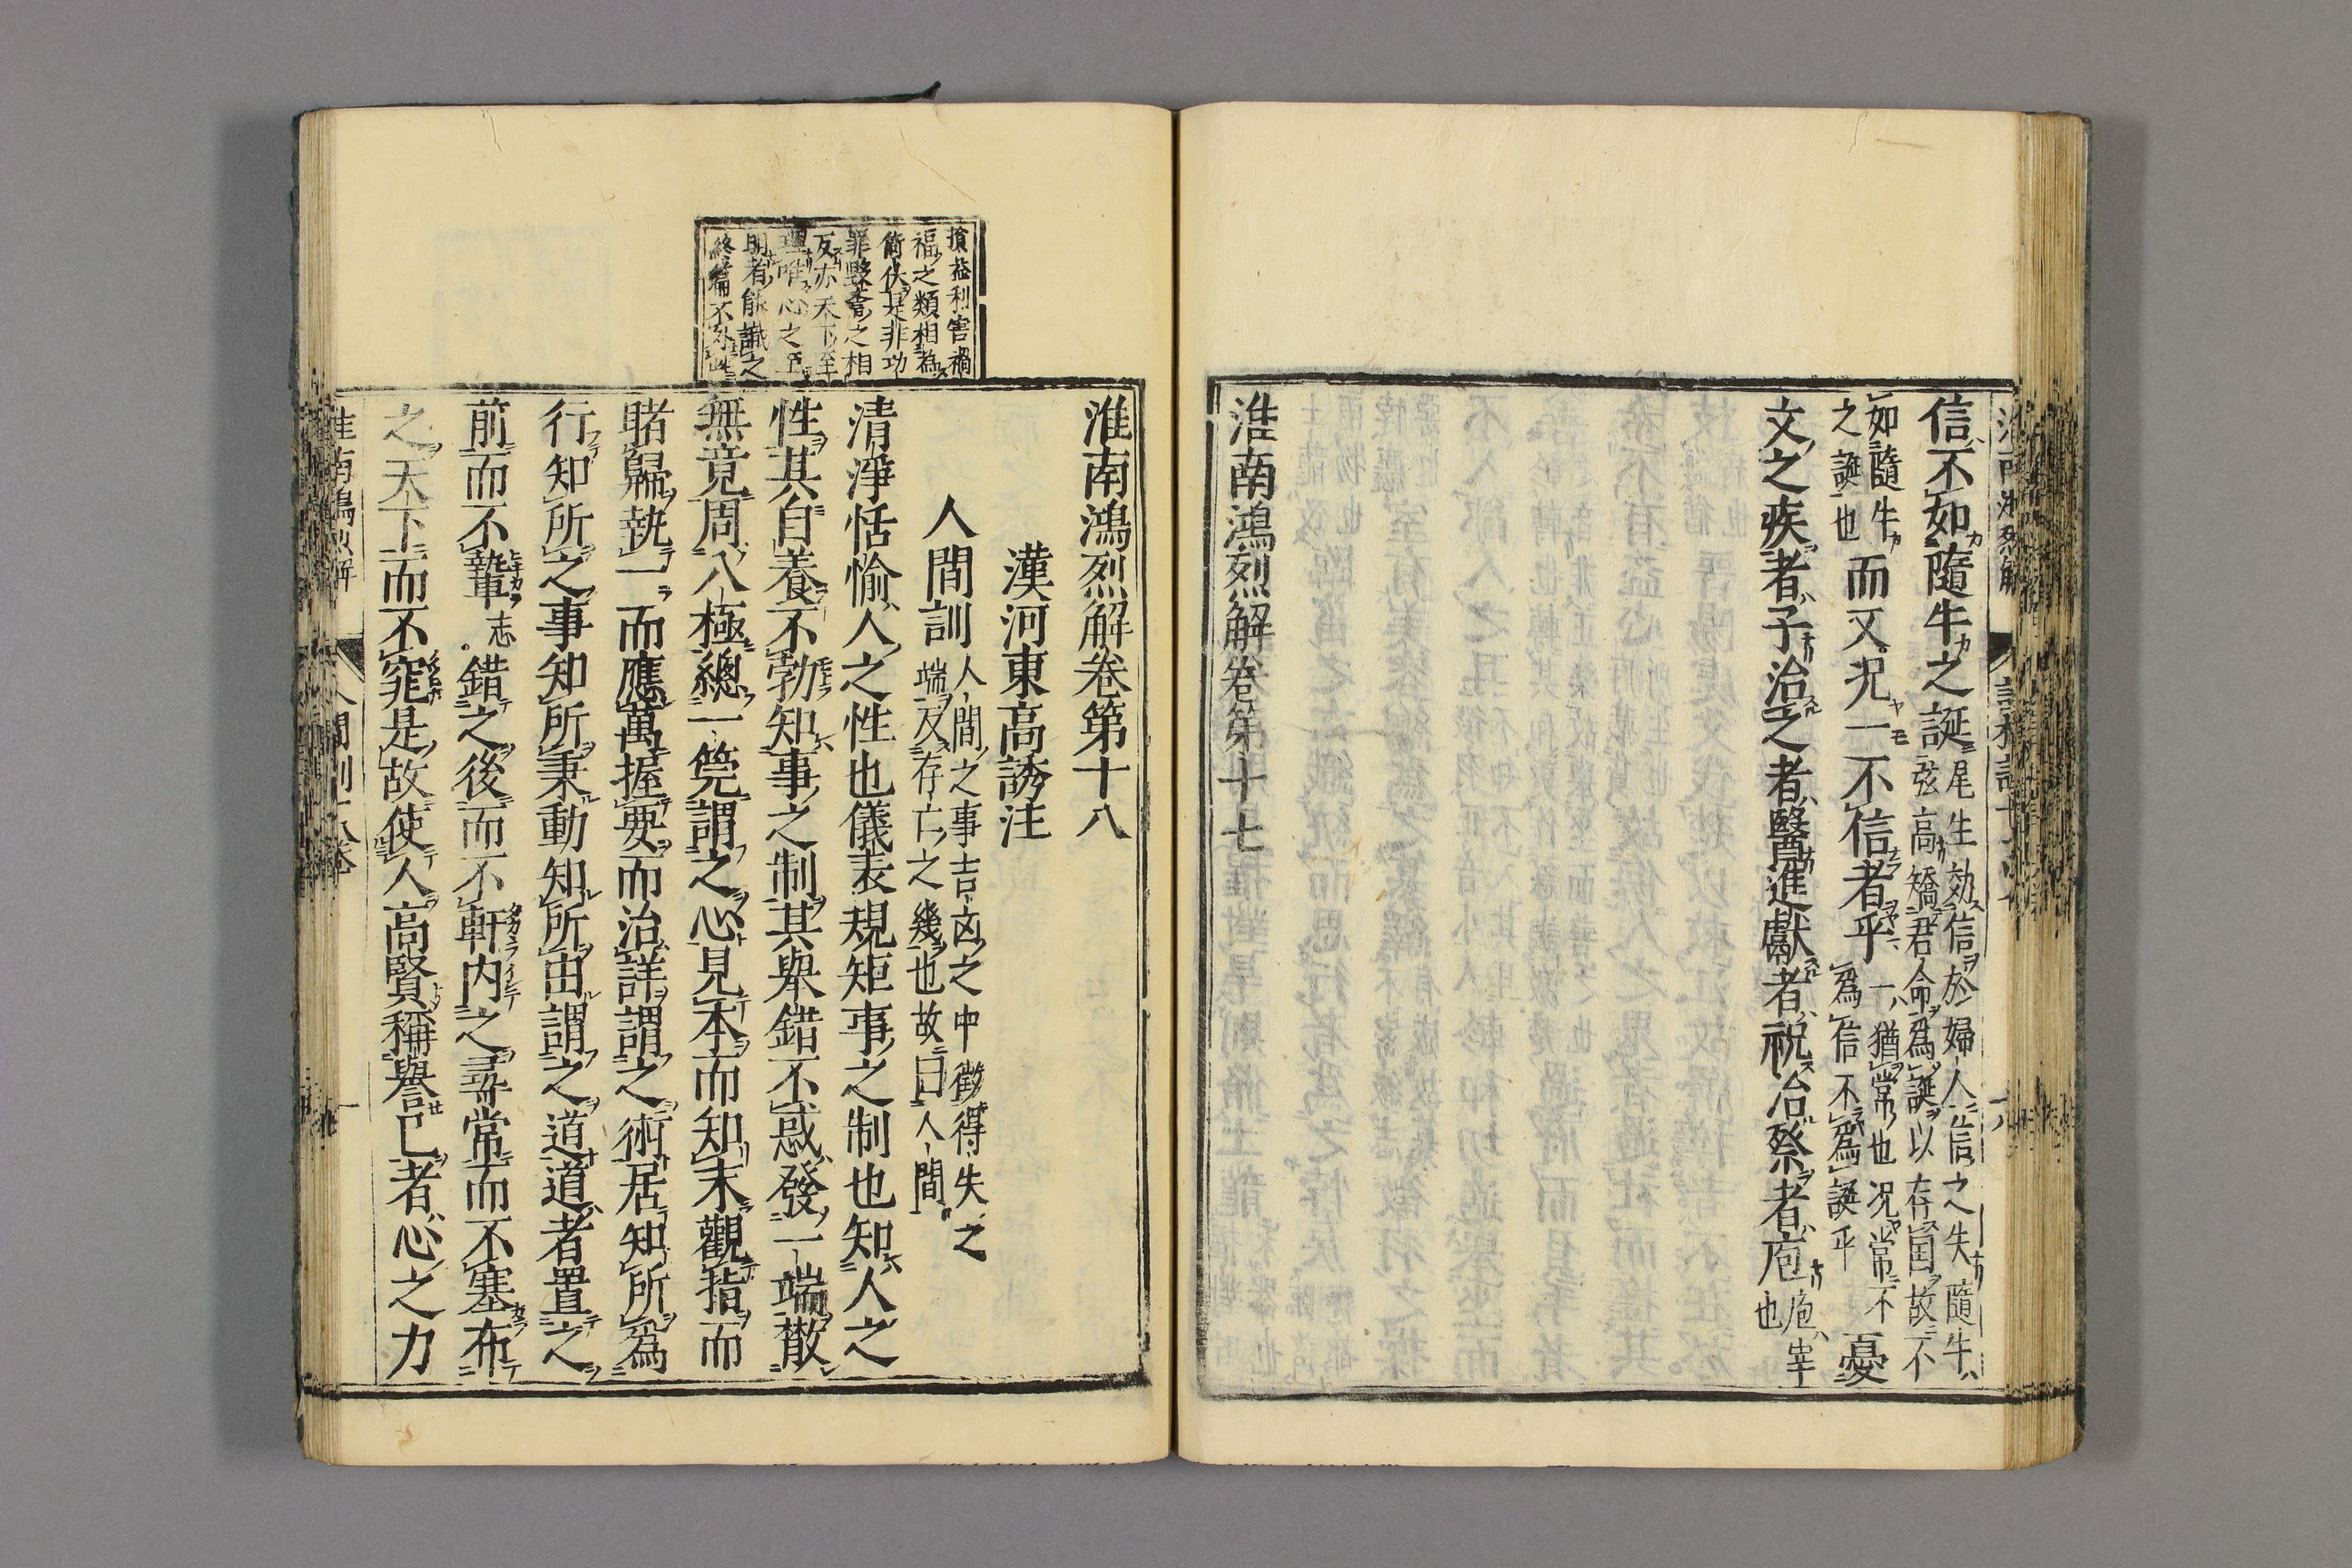 信不如隨牛之誕尾生效信於婦人信之失隨牛
弦高矯君命為誕以存国故不
如隨牛
之誕也而又況一不信者乎一猶常也況常不
為信不為誕乎憂
文之疾者子治之者醫進獻者祝治祭者庖庖宰
也
淮南鴻烈解卷第十七
損益利害禍
福之類相為
倚伏是非功
罪毀譽之相
反亦天下至
理唯心之至
明者能識之
終篇不外此
淮南鴻烈解卷第十八
漢河東高誘注
人間訓人間之事吉凶之中徵得失之
端反存亡之幾也故曰人間
清淨恬愉人之性也儀表規矩事之制也知人之
性其自養不勃知事之制其舉錯不惑發一端散
無竟周八極總一筦謂之心見本而知末觀指而
睹歸執一而應萬握要而治詳謂之術居知所為
行知所之事知所秉動知所由謂之道道者置之
前而不𨎌志錯之後而不軒内之尋常而不塞布
之天下而不窕是故使人高賢稱譽己者心之力
淮南鴻烈解 人間訓 一